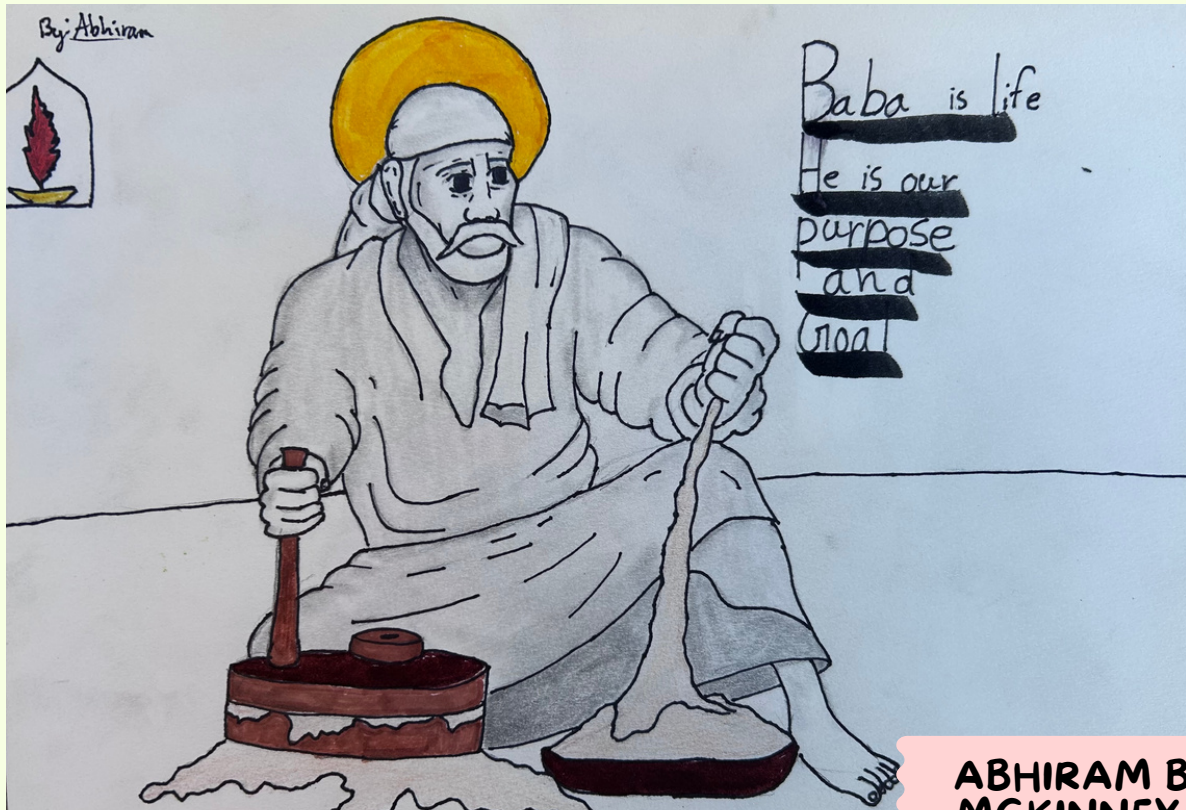 By: Abhiram
Baba is life
He is our
purpose
and
Goal
ABHIRAM B
MCKINNEY